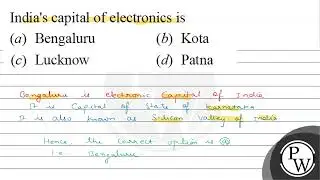 India's capital of electronics is
(a) Bengaluru (b) Kota
(c) Lucknow (d) Patna
Bengaluru is electronic Capital of India
It is Capital of State of Karnataka
It is also known as Silicon Valley of India
Hence, the correct option is (a)
i.e. Bengaluru
PW